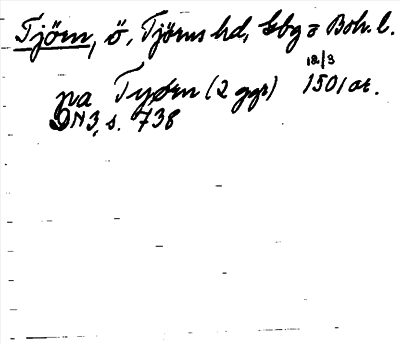 Tjörn, ö, Tjörns hd, Gbg o Boh. l.
18/3
pa Tyørn (2 ggr) 1501 or.
DN3, s. 738